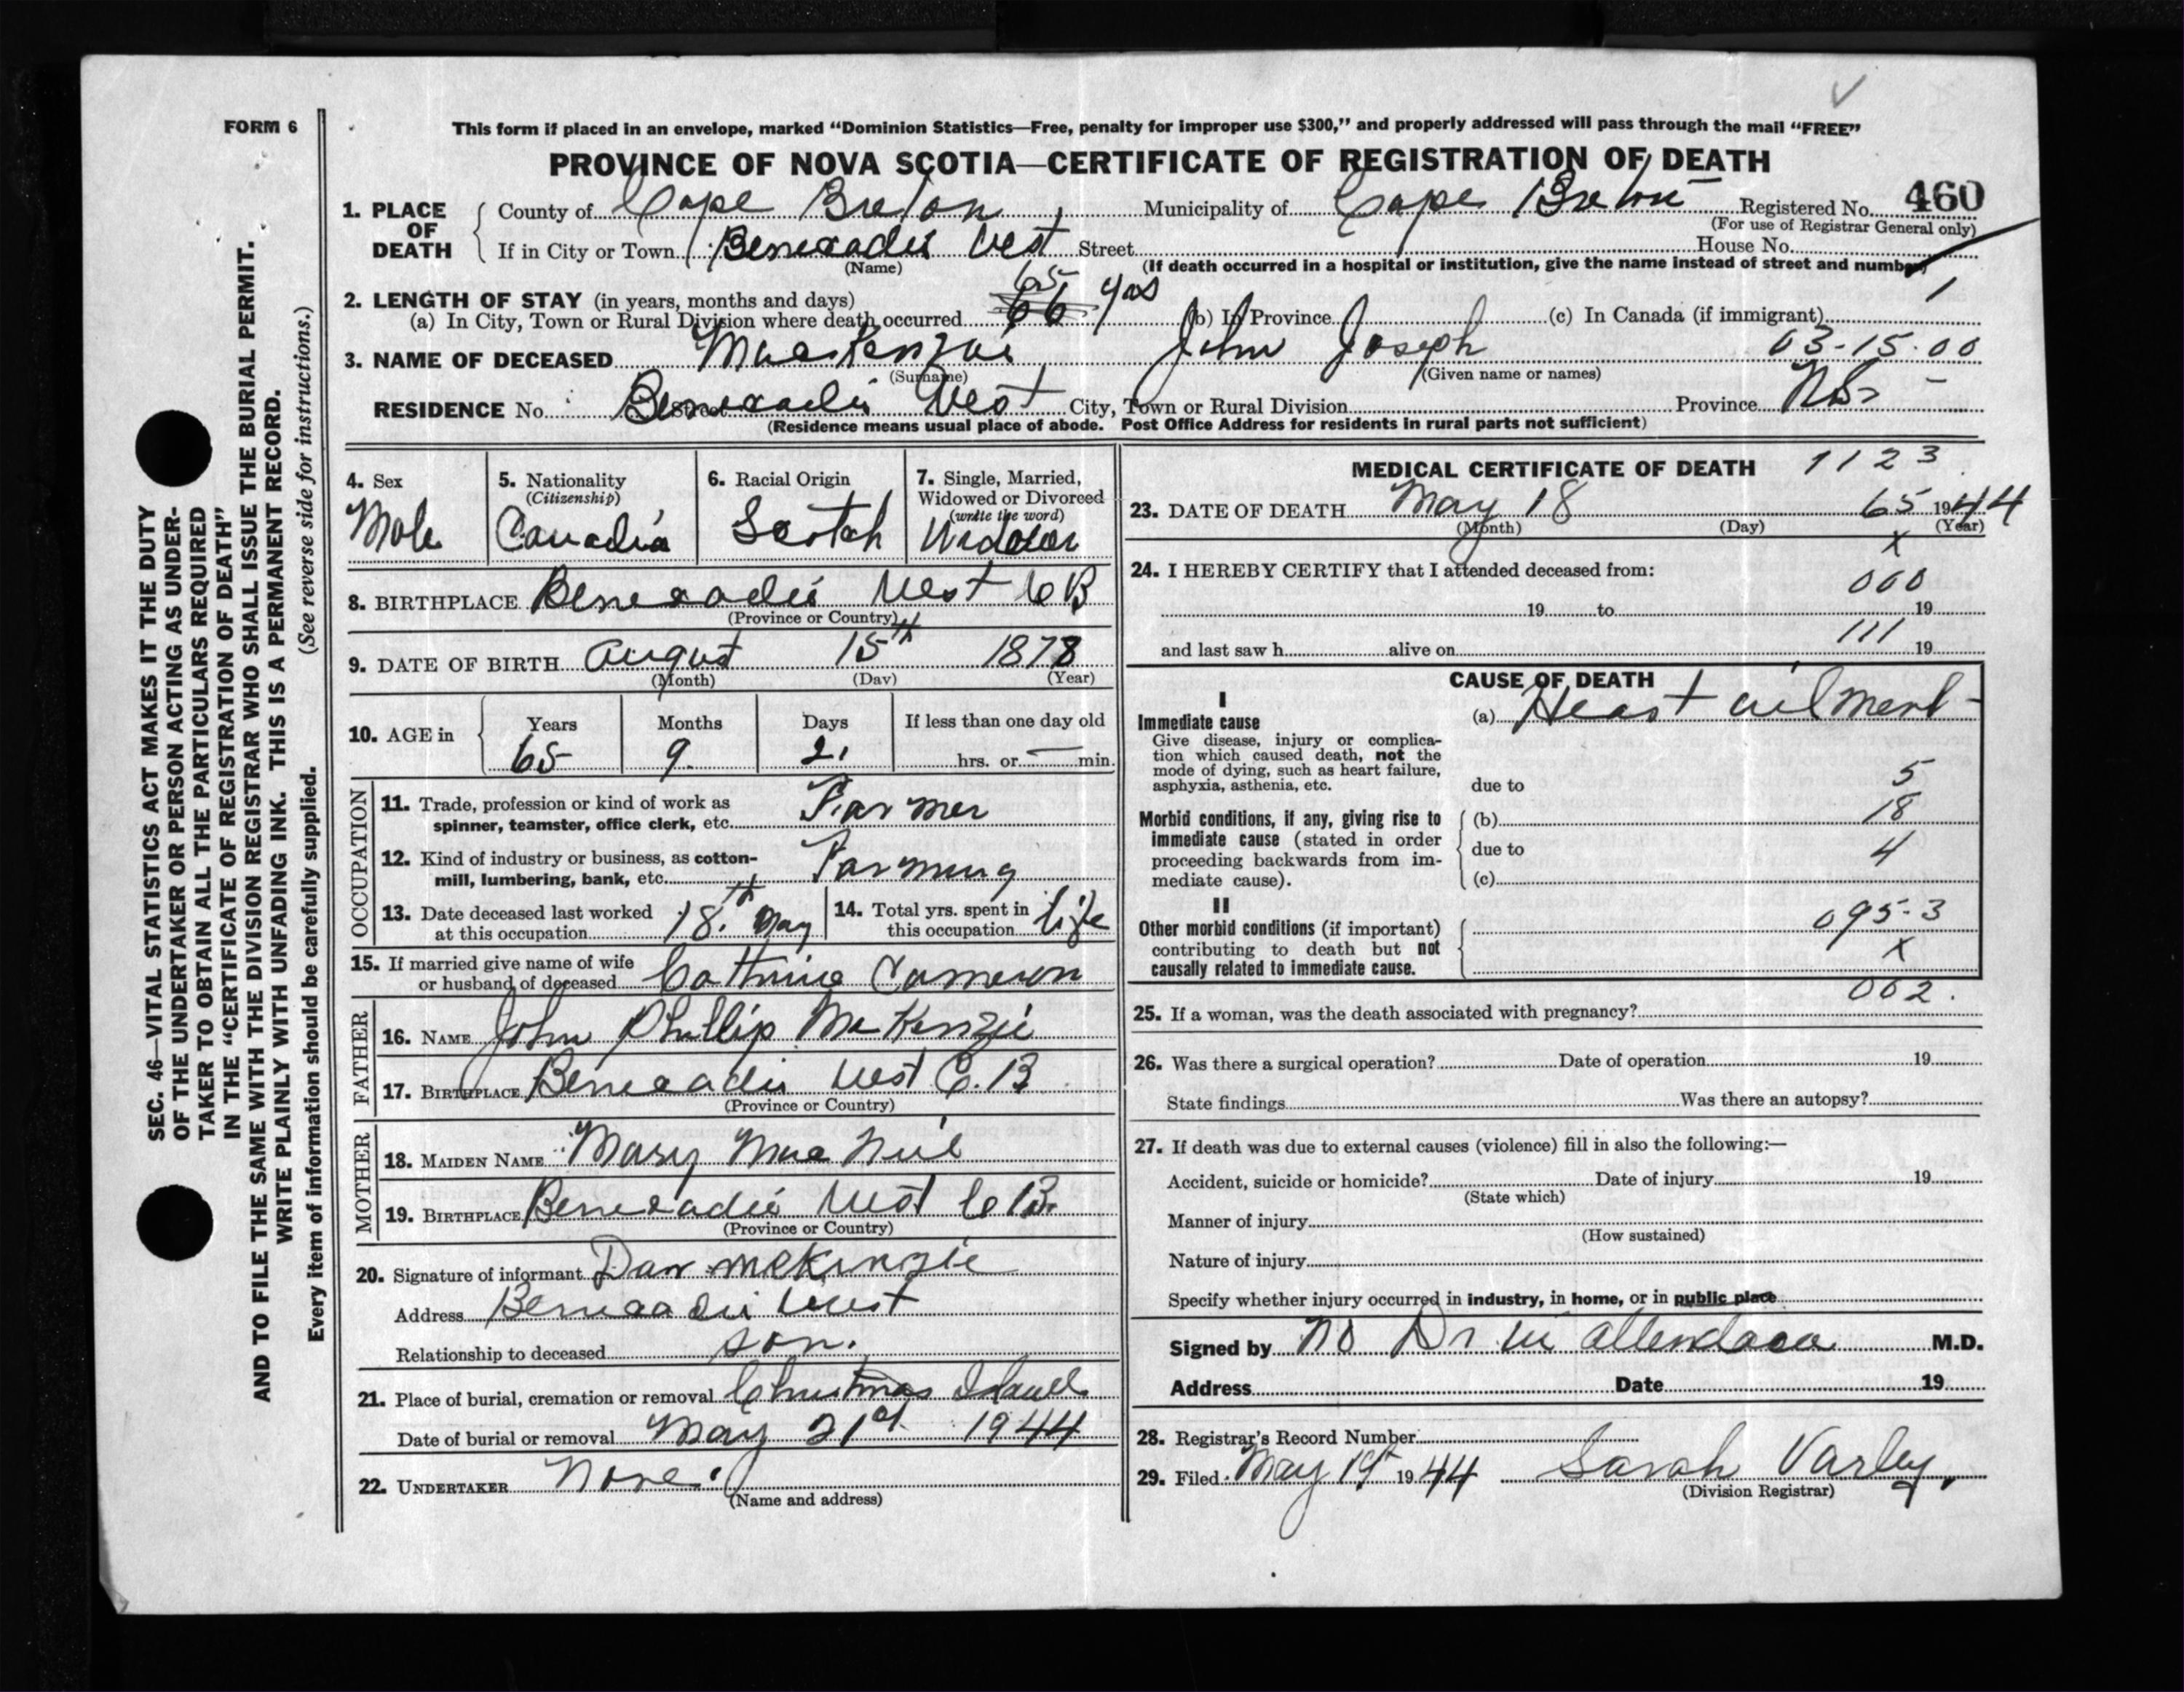 FORM 6
This form if placed in an envelope, marked "Dominion Statistics—Free, penalty for improper use $300," and properly addressed will pass through the mail "FREE"
PROVINCE OF NOVA SCOTIA—CERTIFICATE OF REGISTRATION OF DEATH
1. PLACE OF DEATH County of Cape Breton, Municipality of Cape Breton Registered No. 460
(For use of Registrar General only)
If in City or Town Beneacadie West Street House No.
(Name) (If death occurred in a hospital or institution, give the name instead of street and number)
2. LENGTH OF STAY (in years, months and days) 65 1
(a) In City, Town or Rural Division where death occurred 66 yrs (b) In Province (c) In Canada (if immigrant)
3. NAME OF DECEASED MacKenzie John Joseph 03-15-00
(Surname) (Given name or names)
RESIDENCE No. Street Beneacadie West City, Town or Rural Division Province N.S.
(Residence means usual place of abode. Post Office Address for residents in rural parts not sufficient)
4. Sex Male
5. Nationality (Citizenship) Canadia
6. Racial Origin Scotch
7. Single, Married, Widowed or Divorced (write the word) Widower
8. BIRTHPLACE Beneacadie West C B
(Province or Country)
9. DATE OF BIRTH August 15th 1878
(Month) (Day) (Year)
10. AGE in Years Months Days If less than one day old
65 9. 2. hrs. or — min.
OCCUPATION
11. Trade, profession or kind of work as spinner, teamster, office clerk, etc. Farmer
12. Kind of industry or business, as cotton-mill, lumbering, bank, etc. Farming
13. Date deceased last worked at this occupation 18.th May
14. Total yrs. spent in this occupation life
15. If married give name of wife or husband of deceased Cathrine Cameron
FATHER
16. NAME John Phillip McKenzie
17. BIRTHPLACE Beneacadie West C.B.
(Province or Country)
MOTHER
18. MAIDEN NAME Mary MacNeil
19. BIRTHPLACE Beneacadie West C B.
(Province or Country)
20. Signature of informant Dan McKinzie
Address Beneacadie West
Relationship to deceased son.
21. Place of burial, cremation or removal Christmas Island
Date of burial or removal May 21st 1944
22. UNDERTAKER None.
(Name and address)
MEDICAL CERTIFICATE OF DEATH 1123
23. DATE OF DEATH May 18 65 1944
(Month) (Day) (Year)
x
24. I HEREBY CERTIFY that I attended deceased from:
000
19 to 19
111
and last saw h alive on 19
CAUSE OF DEATH
I
Immediate cause (a) Heart ailment -
Give disease, injury or complication which caused death, not the mode of dying, such as heart failure, asphyxia, asthenia, etc.
due to 5
Morbid conditions, if any, giving rise to immediate cause (stated in order proceeding backwards from immediate cause).
(b) 18
due to 4
(c)
II
Other morbid conditions (if important) contributing to death but not causally related to immediate cause.
095-3
x
002.
25. If a woman, was the death associated with pregnancy?
26. Was there a surgical operation? Date of operation 19
State findings Was there an autopsy?
27. If death was due to external causes (violence) fill in also the following:—
Accident, suicide or homicide? Date of injury 19
(State which)
Manner of injury
(How sustained)
Nature of injury
Specify whether injury occurred in industry, in home, or in public place
Signed by No Dr in attendace M.D.
Address Date 19
28. Registrar's Record Number
29. Filed May 19th 1944 Sarah Varley.
(Division Registrar)
SEC. 46—VITAL STATISTICS ACT MAKES IT THE DUTY
OF THE UNDERTAKER OR PERSON ACTING AS UNDER-
TAKER TO OBTAIN ALL THE PARTICULARS REQUIRED
IN THE "CERTIFICATE OF REGISTRATION OF DEATH"
AND TO FILE THE SAME WITH THE DIVISION REGISTRAR WHO SHALL ISSUE THE BURIAL PERMIT.
WRITE PLAINLY WITH UNFADING INK. THIS IS A PERMANENT RECORD.
Every item of information should be carefully supplied. (See reverse side for instructions.)